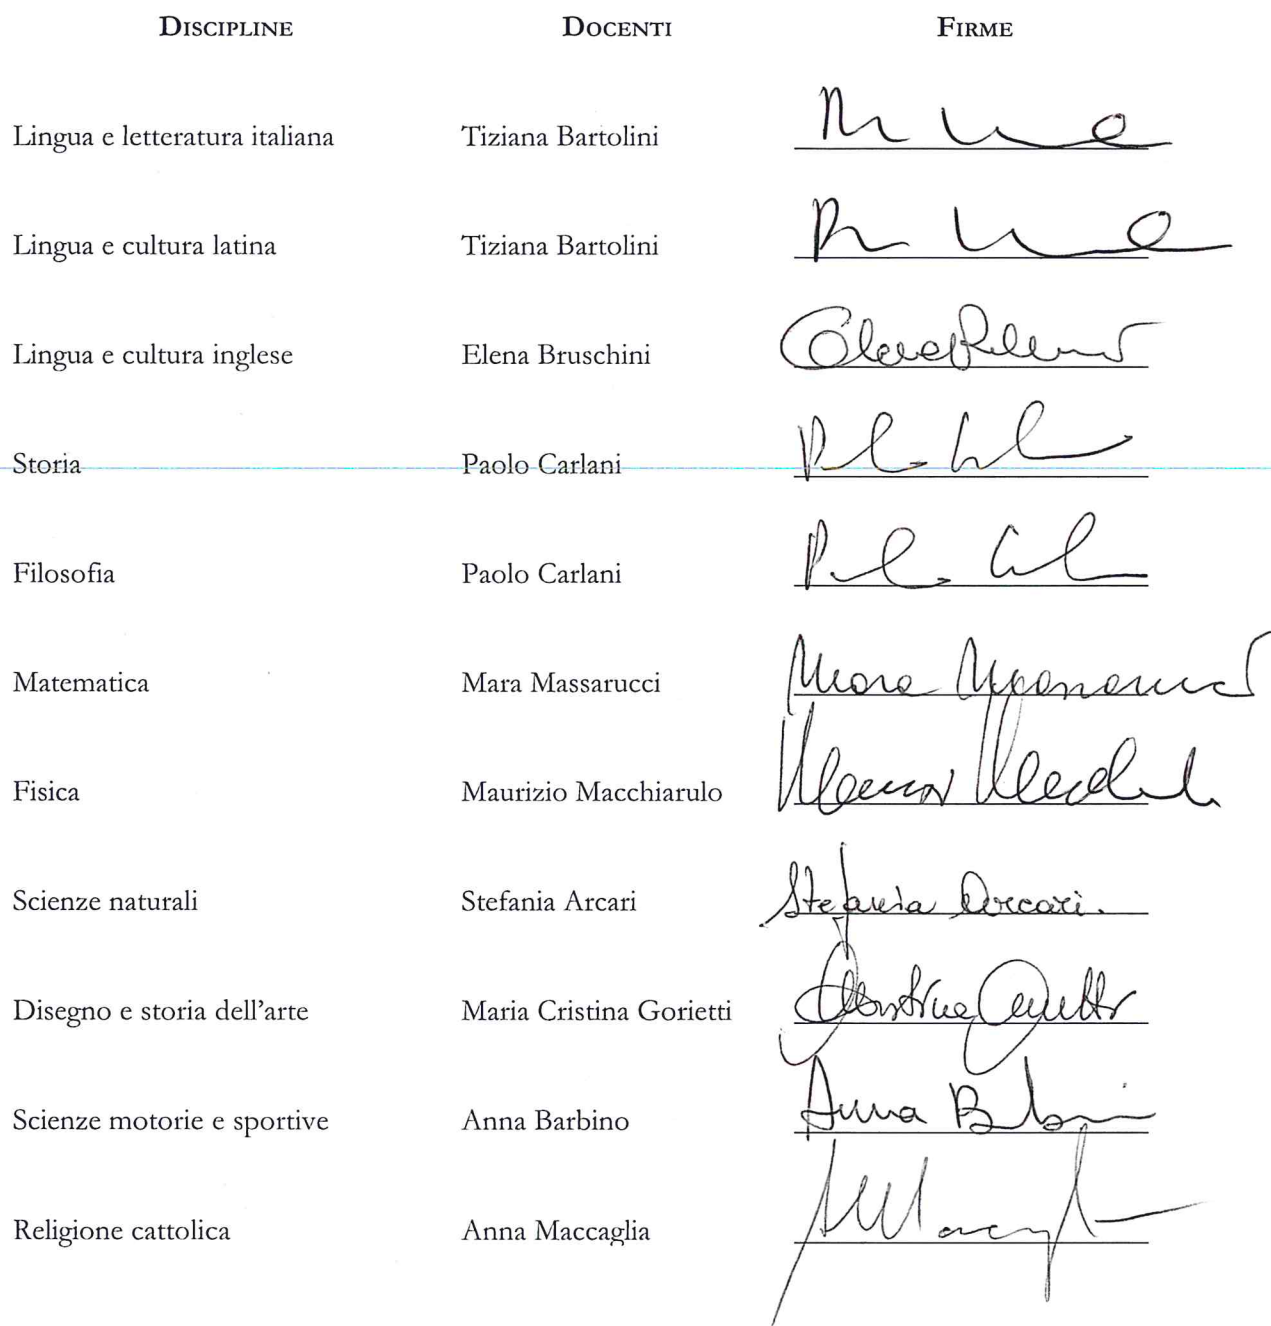 DISCIPLINE DOCENTI FIRME
Lingua e letteratura italiana Tiziana Bartolini
Lingua e cultura latina Tiziana Bartolini
Lingua e cultura inglese Elena Bruschini
Storia Paolo Carlani
Filosofia Paolo Carlani
Matematica Mara Massarucci Mara Massarucci
Fisica Maurizio Macchiarulo
Scienze naturali Stefania Arcari Stefania Arcari.
Disegno e storia dell'arte Maria Cristina Gorietti
Scienze motorie e sportive Anna Barbino Anna
Religione cattolica Anna Maccaglia